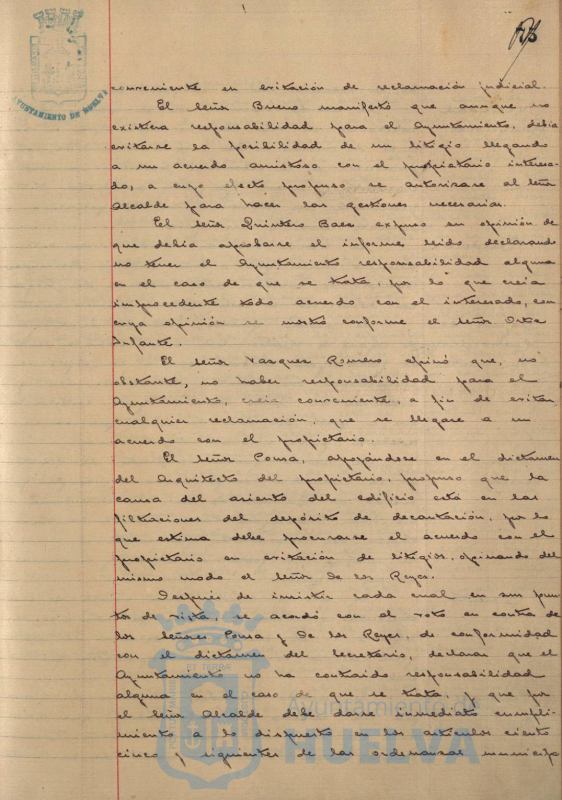 AYUNTAMIENTO DE HUELVA
conveniente en evitación de reclamación judicial.
El Señor Bueno manifestó que aunque no
existiera responsabilidad para el Ayuntamiento, debia
evitarse la posibilidad de un litigio llegando
a un acuerdo amistoso con el propietario interesa-
do, a cuyo efecto propuso se autorizase al Señor
Alcalde para hacer las gestiones necesarias.
El Señor Quintero Baez expuso su opinión de
que debia aprobarse el informe leido declarando
no tener el Ayuntamiento responsabilidad alguna
en el caso de que se trata, por lo que creia
improcedente todo acuerdo con el interesado, con
cuya opinión se mostró conforme el Señor Orta
Infante.
El Señor Vazquez Romero opinó que, no
obstante, no haber responsabilidad para el
Ayuntamiento, creia conveniente, a fin de evitar
cualquier reclamación, que se llegase a un
acuerdo con el propietario.
El Señor Ponsa, apoyándose en el dictamen
del Arquitecto del propietario, propuso que la
causa del asiento del edificio está en las
filtraciones del depósito de decantación, por lo
que estima debe procurarse el acuerdo con el
propietario en evitación de litigios, opinando del
mismo modo el Señor De los Reyes.
Después de insistir cada cual en sus pun-
tos de vista, se acordó con el voto en contra de
los Señores Ponsa y De los Reyes, de conformidad
con el dictamen del Secretario, declarar que el
Ayuntamiento no ha contraido responsabilidad
alguna en el caso de que se trata, y que por
el Señor Alcalde debe darse inmediato cumpli-
miento a lo dispuesto en los artículos ciento
cinco y siguientes de las ordenanzas municipa
Ayuntamiento de
HUELVA